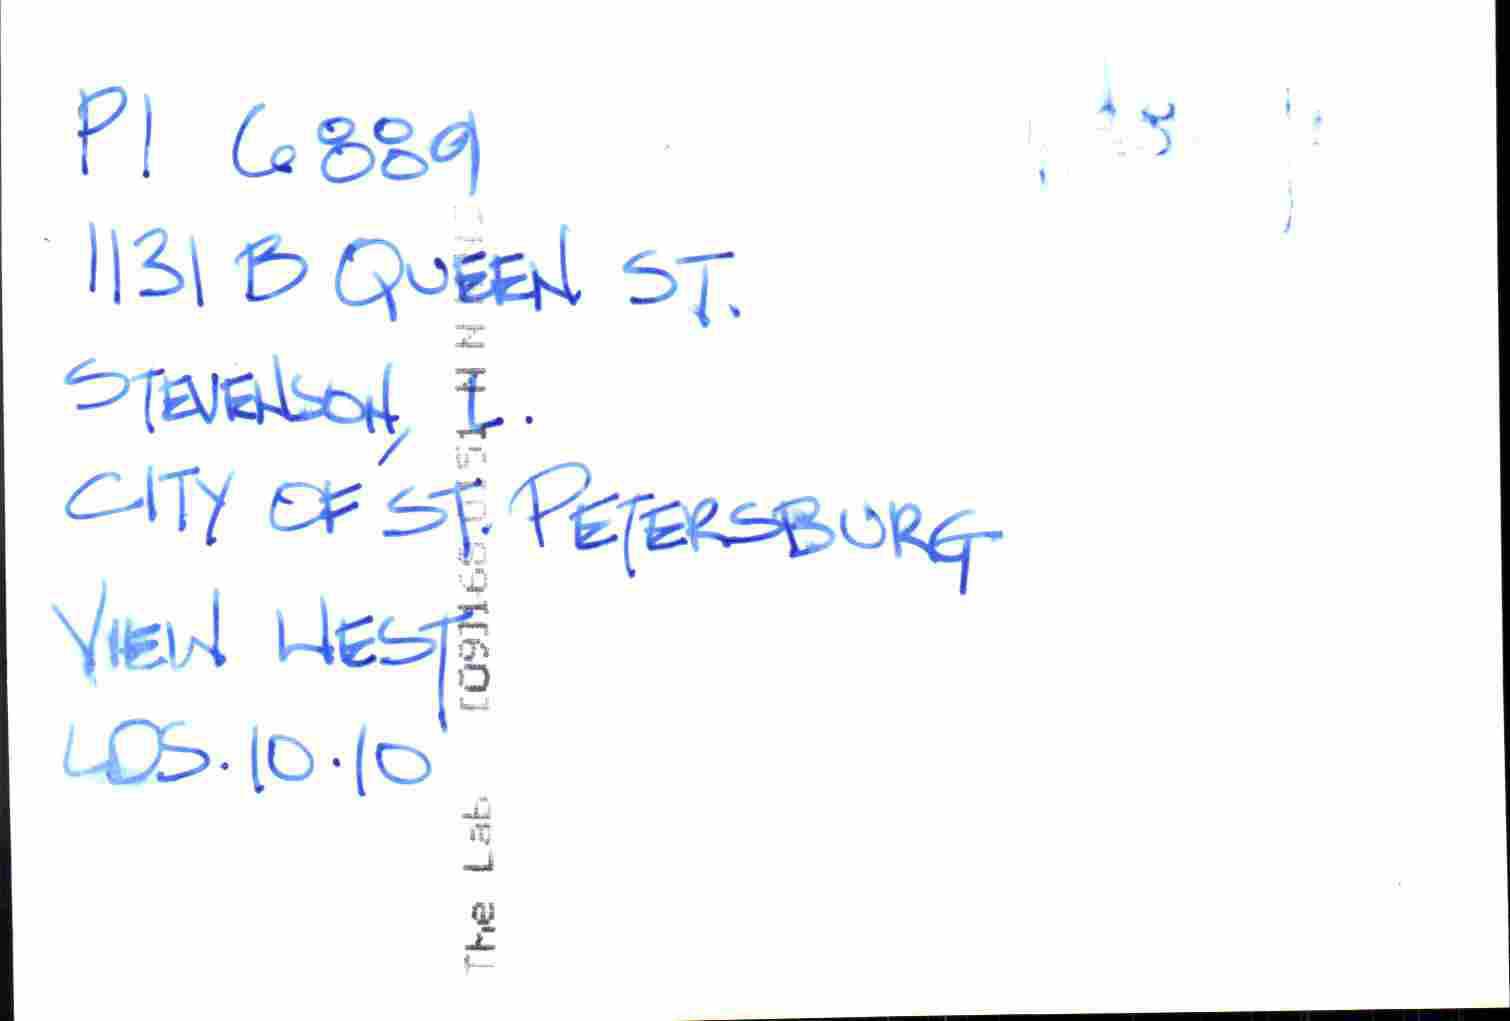 PI 6889
1131 B QUEEN ST.
STEVENSON, L.
CITY OF ST. PETERSBURG
VIEW WEST
LDS.10.10
The Lab